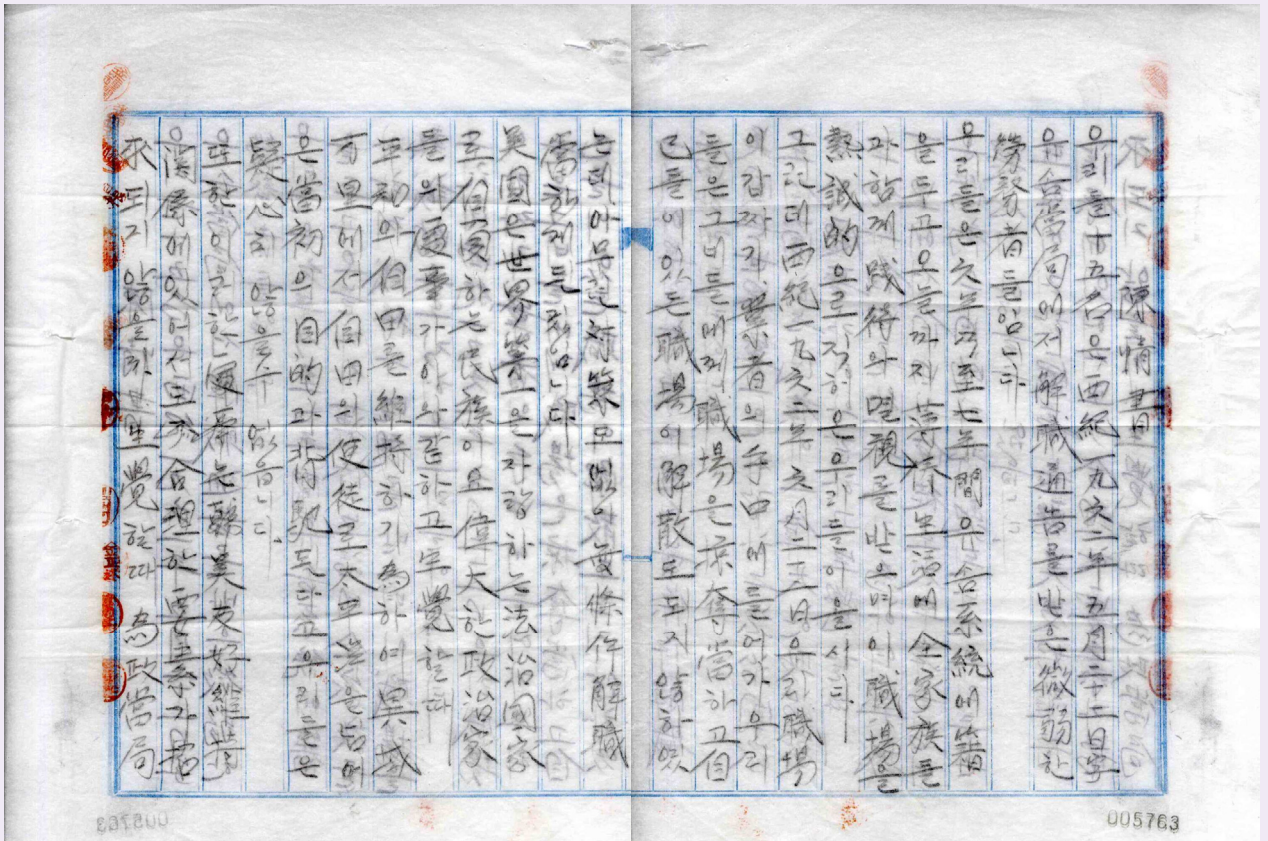 陳情書
우리들 十五名은 西紀 一九六二年 五月 二十二日字
유솜當局에서 解職通告를 받은 微弱한
勞務者들입니다
우리들은 六年 乃至 七年間 유솜系統에 籍
을 두고 오늘까지 苦行生活에 全家族들
과 함께 賤待와 멸視를 받으며 이 職場을
熱誠的으로 직히온 우리들이올시다
그런데 西紀 一九六二年 六月 二三日 우리 職場
이 갑짜기 業者의 手中에 들어가 우리
들은 그네들에께 職場은 奪當하고 自
己들이 있는 職場이 解散도 되지 않하였
는되 아무런 對策도 없이 無條件 解職
當한 것입니다
美國은 世界第一은 자랑하는 法治國家
로 自負하는 民族이요 偉大한 政治家
들의 處事가 이와 같하고 生覺할 때
平和와 自由를 維持하기 為하여 異域
万里에서 自由의 使徒로 太
은 當初의 目的과 背馳된다고 우리들은
疑心치 않을 수 없읍니다
또한 이러한 處事는 韓美友好維持
関係에 있어서도 合理한 要素가
않을 生覺할 때 為政當局
005763